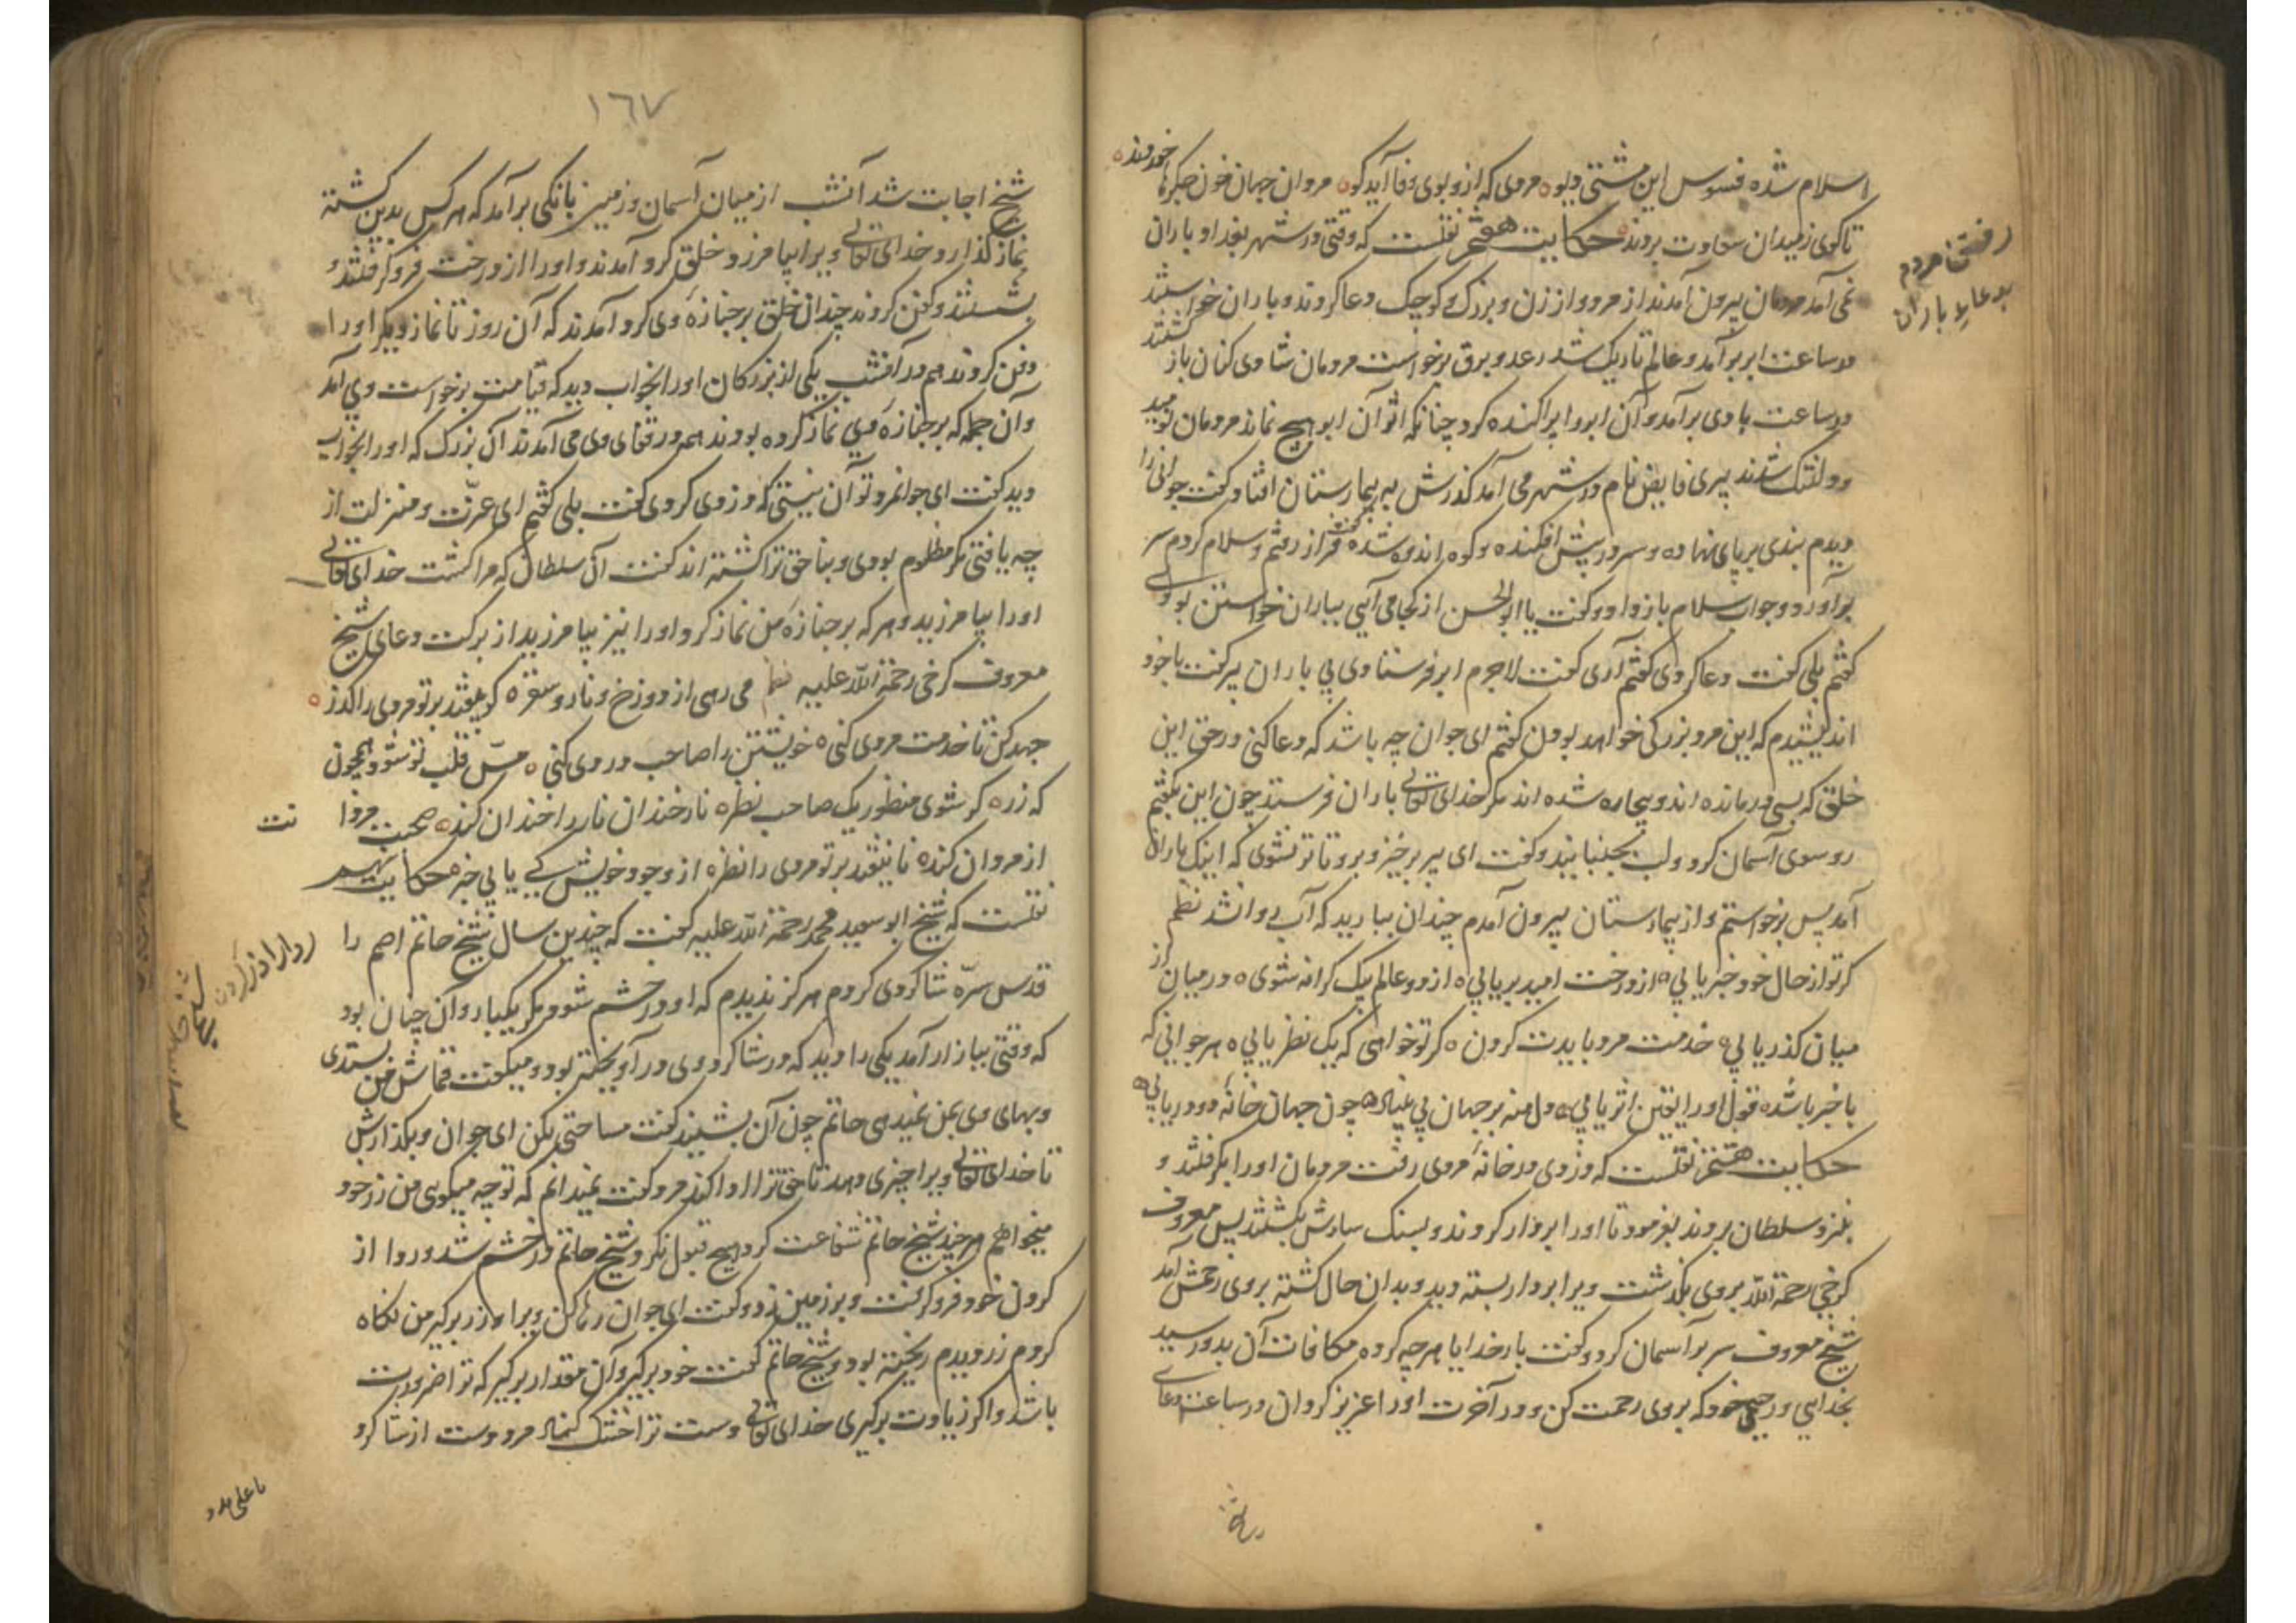 اسلام شده فسوس این مشتی دیو ه مردی که ازو بوی وفا آید کو ه مردان جهان خون جگرها خوردند ه
تا کوی ز میدان سعادت بردند ه حکایت هفتم نقلست که وقتی در شهر بغداد باران
نمی آمد مردمان بیرون آمدند از مرد و از زن و بزرک و کوچک دعا کردند و باران خواستند
در ساعت ابر برآمد و عالم تاریک شد رعد و برق برخواست مردمان شادی کنان باز کشتند
در ساعت بادی برآمد و آن ابر را پراکنده کرد چنانکه اثر آن ابر هیچ نماند مردمان نومید
و دلتنک شدند پیری فایض نام در شهر می آمد کذرش به بیمارستان افتاد کفت جوانی را
دیدم بندی بر پای نهاده و سر در پیش افکنده و کوه اندوه شده فراز رفتم و سلام کردم سر
برآورد و جواب سلام باز داد و کفت یا ابوالحسن از کجا می آیی بباران خواستن بودی
کفتم بلی کفت دعا کردی کفتم آری کفت لاجرم ابر فرستادی بی باران پیر کفت با خود
اندیشیدم که این مرد بزرکی خواهد بودن کفتم ای جوان چه باشد که دعا کنی در حق این
خلق که بسی درمانده اند و بیچاره شده اند مکر خدای تعالی باران فرستد چون این بکفتم
رو سوی آسمان کرد و لب بجنبانید و کفت ای پیر برخیز و برو تا تر نشوی که اینک باران
آمد پس برخواستم و از بیمارستان بیرون آمدم چندان ببارید که آب روان شد نظم
کر تو از حال خود خبر یابی ه از درخت امید بر یابی ه از دو عالم بیک کرانه شوی ه در میان از
میان کذر یابی ه خدمت مرد بایدت کردن ه کر تو خواهی که یک نظر یابی ه هر جوانی که
با خبر باشد ه قول او را یقین اثر یابی ه دل منه بر جهان بی بنیاد ه چون جهان خانه دو در یابی ه
حکایت هشتم نقلست که دزدی در خانه مردی رفت مردمان او را بکرفتند و
بنزد سلطان بردند بفرمود تا او را بر دار کردند و بسنک سارش بکشتند پس معروف
کرخی رحمة الله بر وی بکذشت ویرا بر دار بسته دید و بدان حال کشته بر وی رحمش آمد
شیخ معروف سر بر آسمان کرد و کفت بار خدایا هر چه کرده مکافات آن بدو رسید
بخدایی و رحیمی خود که بر وی رحمت کن و در آخرت او را عزیز کردان در ساعت دعای
رفتن مردم
بدعای باران
١٦٧
شیخ اجابت شد آنشب از میان آسمان و زمین بانکی برآمد که هر کس بدین کشته
نماز کذارد خدای تعالی ویرا بیامرزد خلق کرد آمدند و او را از درخت فرو کرفتند و
بشستند و کفن کردند چندان خلق بر جنازه وی کرد آمدند که آن روز تا نماز دیکر او را
دفن کردند هم در آنشب یکی از بزرکان او را بخواب دید که قیامت برخواست وی آمد
و آن جمله که بر جنازه وی نماز کرده بودند هم در قفای وی می آمدند آن بزرک که او را بخواب
دید کفت ای جوانمرد تو آن نیستی که دزدی کردی کفت بلی کفتم ای عزت و منزلت از
چه یافتی مکر مظلوم بودی و بناحق ترا کشته اند کفت آن سلطان که مرا کشت خدای تعالی
او را بیامرزید و هر که بر جنازه من نماز کرد او را نیز بیامرزید از برکت دعای شیخ
معروف کرخی رحمة الله علیه نظم می رهی از دوزخ و نار و سقر ه کر بیفتد بر تو مردی را کذر ه
جهد کن تا خدمت مردی کنی ه خویشتن را صاحب دردی کنی ه مس قلب تو شود همچون
که زر ه کر شوی منظور یک صاحب نظر ه نار خندان نار را خندان کند ه صحبت مردا نت
از مردان کند ه تا نیفتد بر تو مردی را نظر ه از وجود خویش کی یابی خبر ه حکایت نهم
نقلست که شیخ ابو سعید محمد رحمة الله علیه کفت که چندین سال شیخ حاتم اصم را
قدس سره شاکردی کردم هرکز ندیدم که او در خشم شود مکر یکبار و آن چنان بود
که وقتی ببازار آمد یکی را دید که در شاکرد وی در آویخته بود و میکفت قماش من بستدی
و بهای وی بمن نمیدهی حاتم چون آن بشنید کفت مساحتی بکن ای جوان و بکذارش
تا خدای تعالی ویرا چیزی دهد تا حق ترا ادا کند مرد کفت نمیدانم که تو چه میکویی من زر خود
میخواهم هر چند شیخ حاتم شفاعت کرد هیچ قبول نکرد شیخ حاتم در خشم شد و ردا از
کردن خود فرو کرفت و بر زمین زد و کفت ای جوان رها کن ویرا و زر برکیر من نکاه
کردم زر دیدم ریخته بود و شیخ حاتم کفت خود برکیر و آن مقدار برکیر که ترا ضرورت
باشد و اکر زیادت برکیری خدای تعالی دست ترا خشک کند مرد دست از شاکرد
ردا را در زدن
یا علی مدد